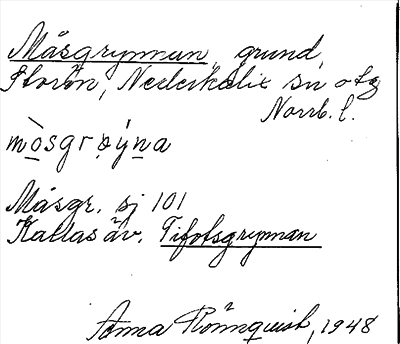 Måsgrynnan, grund,
Storön, Nederkalix sn o tg
Norrb. l.
mò̱sgrø̣ýn̠a
Måsgr. sj 101
Kallas äv. Tifotsgrynnan
Anna Rönnquist, 1948